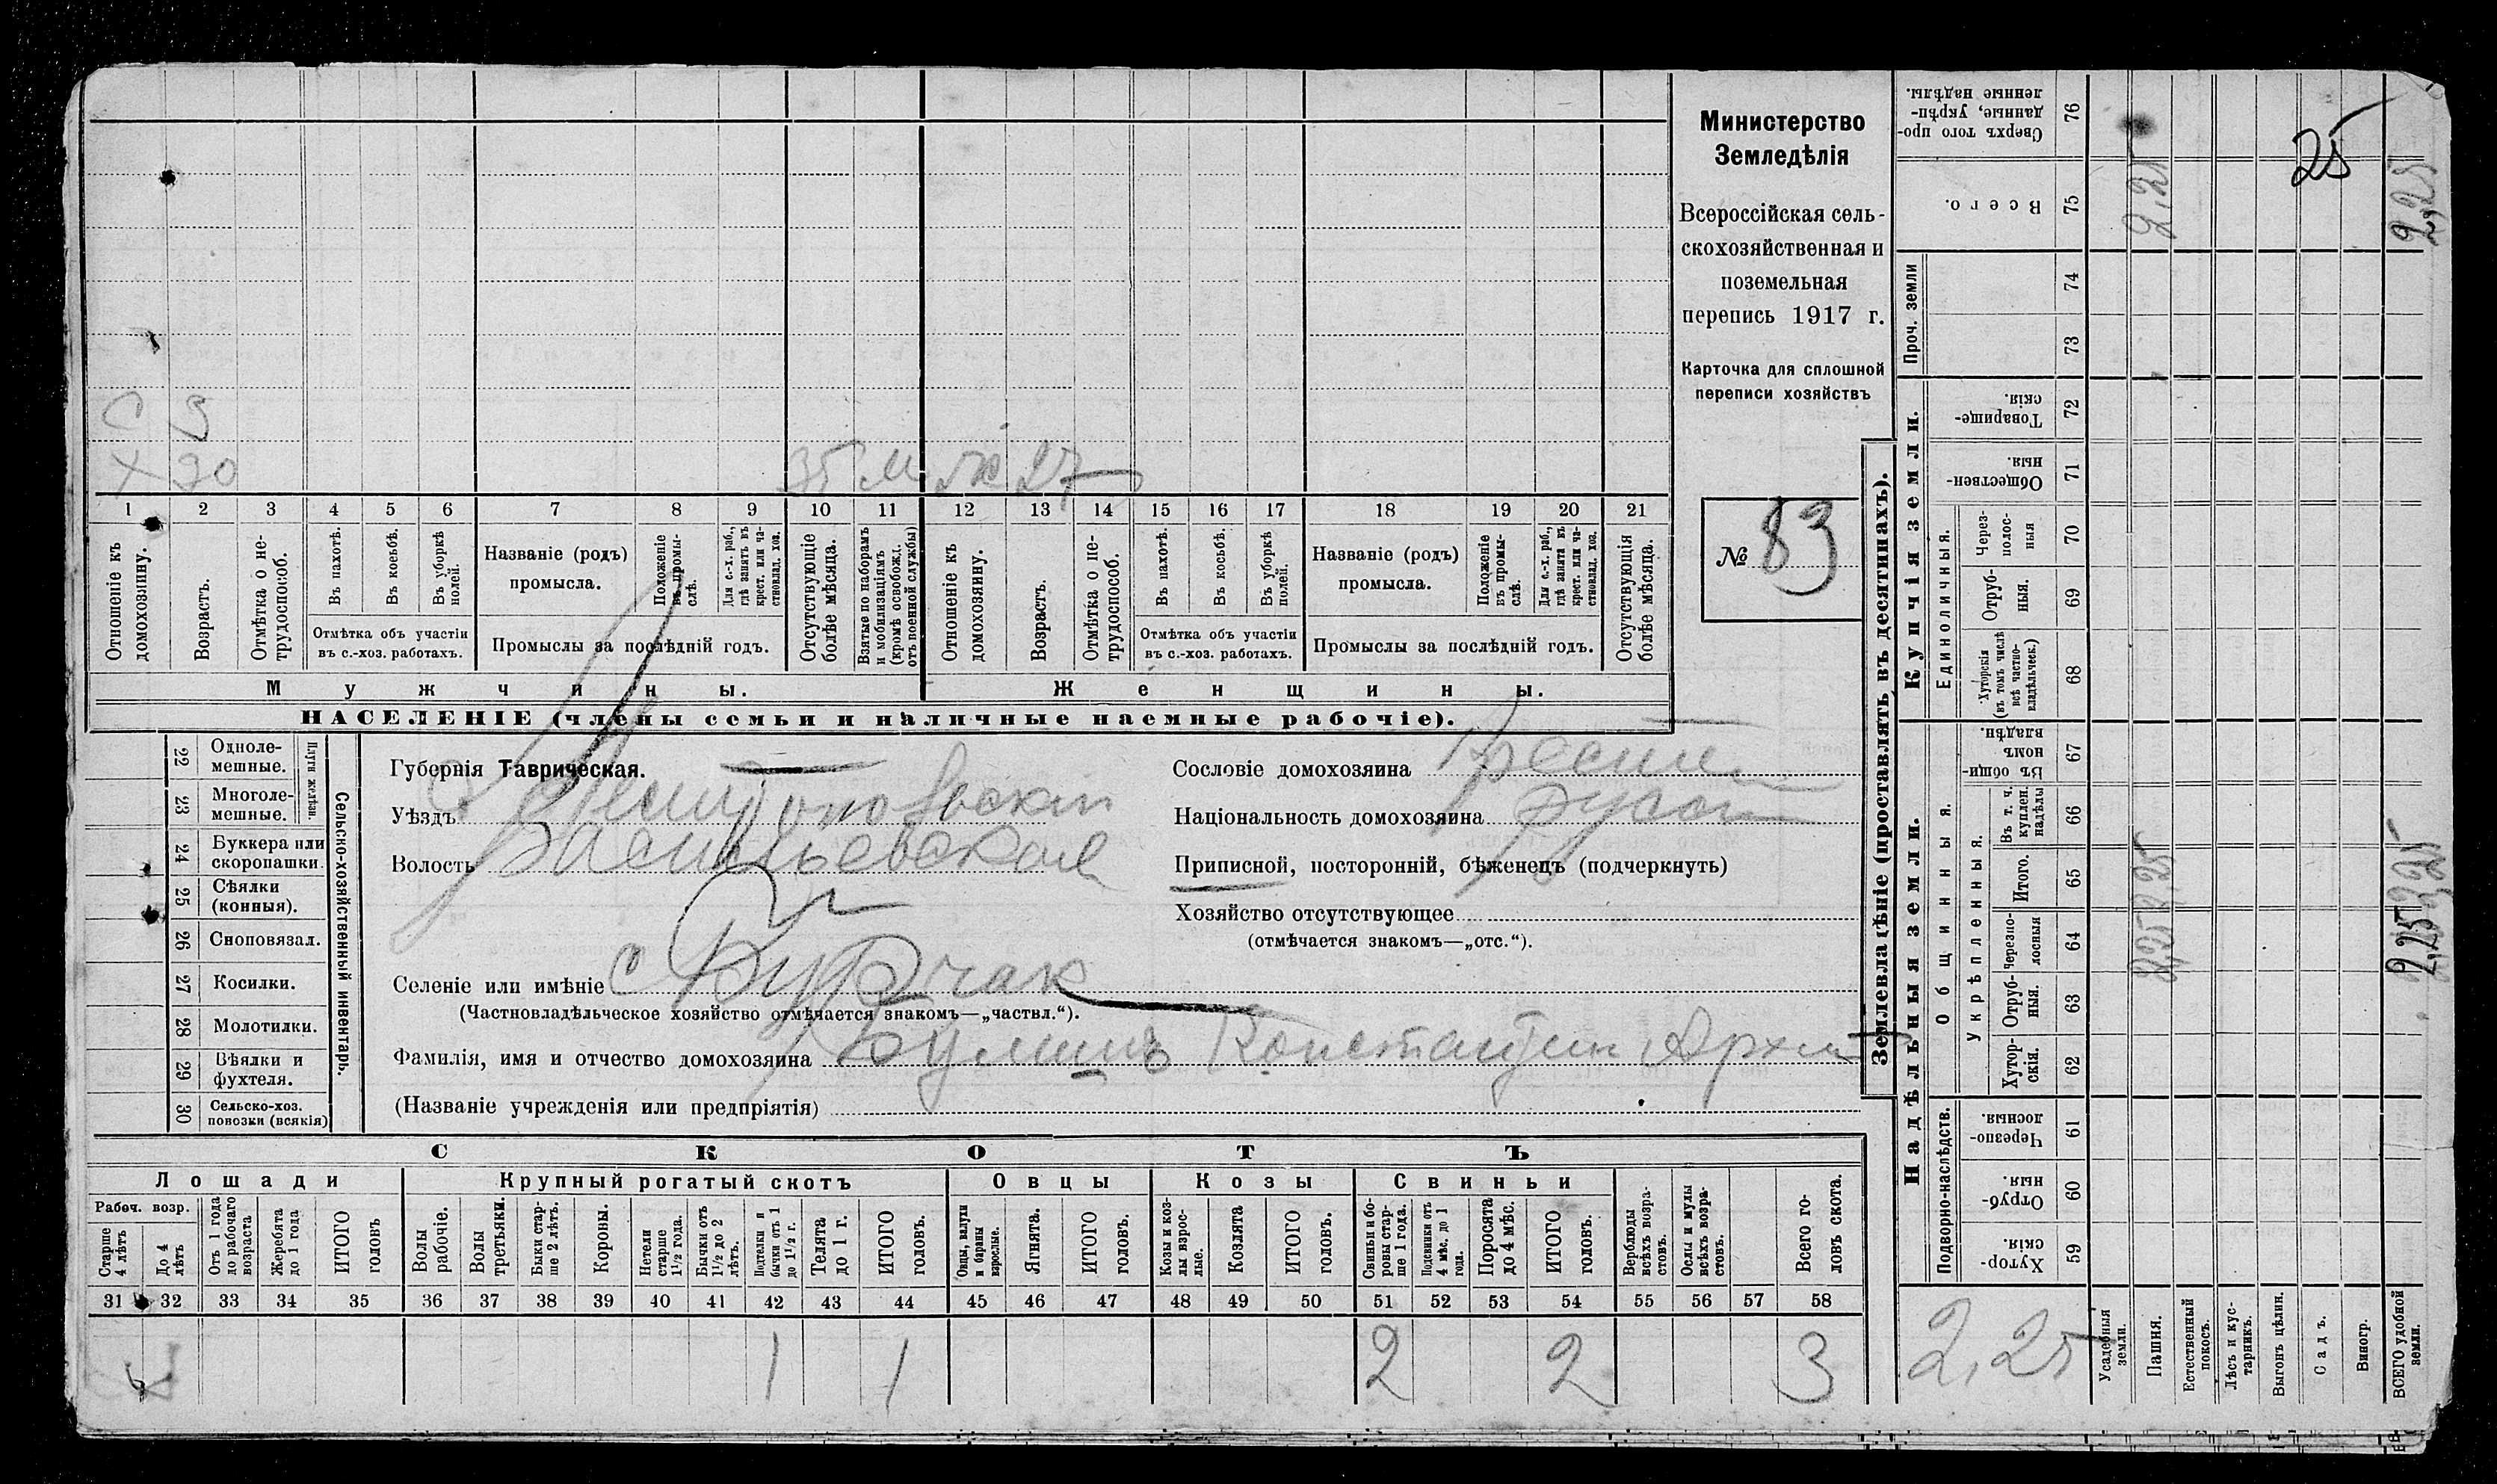 Министерство
Земледѣлія
Всероссійская сель-
скохозяйственная и
поземельная
перепись 1917 г.
Карточка для сплошной
переписи хозяйствъ
№ 83
С 9
Х 30
35 м ж 27
1 2 3 4 5 6 7 8 9 10 11 12 13 14 15 16 17 18 19 20 21
Отношеніе къ домохозяину.
Возрастъ.
Отмѣтка о не-трудоспособ.
Въ пахотѣ.
Въ косьбѣ.
Въ уборкѣ полей.
Отмѣтка объ участіи въ с.-хоз. работахъ.
Названіе (родъ) промысла.
Положеніе въ промы-слѣ.
Для с.-х. раб., гдѣ занятъ въ крест. или ча-стновлад. хоз.
Промыслы за послѣдній годъ.
Отсутствующіе болѣе мѣсяца.
Взятые по наборамъ и мобилизаціямъ (кромѣ освобожд. отъ военной службы)
Отношеніе къ домохозяину.
Возрастъ.
Отмѣтка о не-трудоспособ.
Въ пахотѣ.
Въ косьбѣ.
Въ уборкѣ полей.
Отмѣтка объ участіи въ с.-хоз. работахъ.
Названіе (родъ) промысла.
Положеніе въ промы-слѣ.
Для с.-х. раб., гдѣ занятъ въ крест. или ча-стновлад. хоз.
Промыслы за послѣдній годъ.
Отсутствующія болѣе мѣсяца.
Мужчины.
Женщины.
НАСЕЛЕНІЕ (члены семьи и наличные наемные рабочіе).
Сельско-хозяйственный инвентарь.
Плуги желѣзн.
22 Одноле-мешные.
23 Многоле-мешные.
24 Буккера или скоропашки.
25 Сѣялки (конныя).
26 Сноповязал.
27 Косилки.
28 Молотилки.
29 Вѣялки и фухтеля.
30 Сельско-хоз. повозки (всякія)
Губернія Таврическая.
Уѣздъ Мелитопольскій
Волость Васильевская
Селеніе или имѣніе с
(Частновладѣльческое хозяйство отмѣчается знакомъ—„частвл.“).
Фамилія, имя и отчество домохозяина Константин
(Названіе учрежденія или предпріятія)
Сословіе домохозяина Крестин
Національность домохозяина русск
Приписной, посторонній, бѣженецъ (подчеркнуть)
Хозяйство отсутствующее
(отмѣчается знакомъ—„отс.“).
СКОТЪ
Лошади
Крупный рогатый скотъ
Овцы
Козы
Свиньи
Рабоч. возр.
Старше 4 лѣтъ
До 4 лѣтъ
Отъ 1 года до рабочаго возраста
Жеребята до 1 года
ИТОГО головъ
Волы рабочіе.
Волы третьяки.
Быки стар-ше 2 лѣтъ.
Коровы.
Нетели старше 1½ года.
Бычки отъ 1½ до 2 лѣтъ.
Подтелки и бычки отъ 1 до 1½ г.
Телята до 1 г.
ИТОГО головъ.
Овцы, валухи и бараны взрослые.
Ягнята.
ИТОГО головъ.
Козы и коз-лы взрос-лые.
Козлята
ИТОГО головъ.
Свиньи и бо-ровы стар-ше 1 года.
Подсвинки отъ 4 мѣс. до 1 года.
Поросята до 4 мѣс.
ИТОГО головъ.
Верблюды всѣхъ возра-стовъ.
Ослы и мулы всѣхъ возра-стовъ.
Всего го-ловъ скота.
31 32 33 34 35 36 37 38 39 40 41 42 43 44 45 46 47 48 49 50 51 52 53 54 55 56 57 58
1 1 2 2 3
Землевладѣніе (проставлять въ десятинахъ).
Надѣльныя земли.
Купчія земли.
Проч. земли
Подворно-наслѣдств.
Общинныя.
Укрѣпленныя.
Единоличныя.
Сверхъ того про-данные, укрѣп-ленные надѣлы. 76
Всего. 75
74
73
Товарище-скія. 72
Обществен-ныя. 71
Через-полос-ныя 70
Отруб-ныя. 69
Хуторскія (въ томъ числѣ всѣ частно-владѣльческ.) 68
Въ общин-номъ владѣн. 67
Въ т. ч. куплен. надѣлы 66
Итого. 65
Черезпо-лосныя 64
Отруб-ныя. 63
Хутор-скія. 62
Черезпо-лосныя. 61
Отруб-ныя. 60
Хутор-скія. 59
25
2,25
2,25
2,25
2,25
2,25
2,25
Усадебныя земли.
Пашня.
Естественный покосъ.
Лѣсъ и кус-тарникъ.
Выгонъ цѣлин.
Садъ.
Виногр.
ВСЕГО удобной земли.